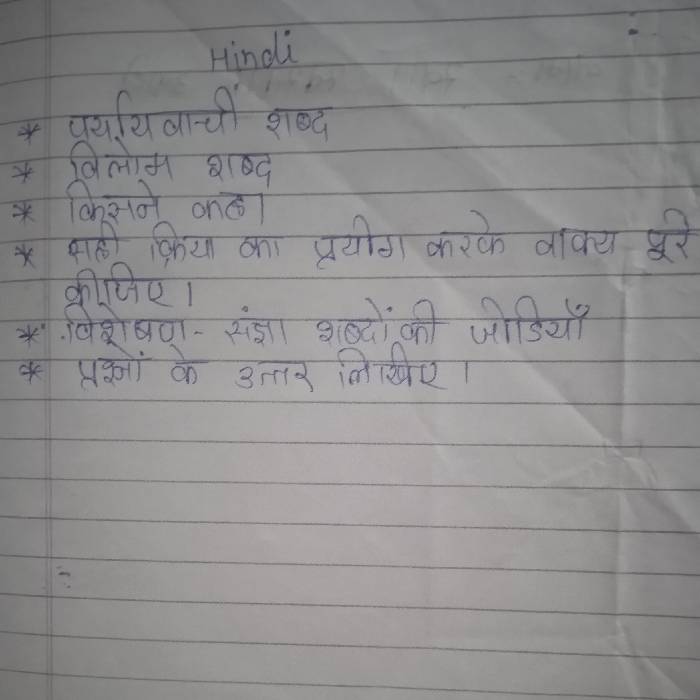 Hindi
* पर्यायवाची शब्द
* विलोम शब्द
* किसने कहा
* सही क्रिया का प्रयोग करके वाक्य पूरे
कीजिए।
* विशेषण - संज्ञा शब्दों की जोडियाँ
* प्रश्नों के उत्तर लिखिए।